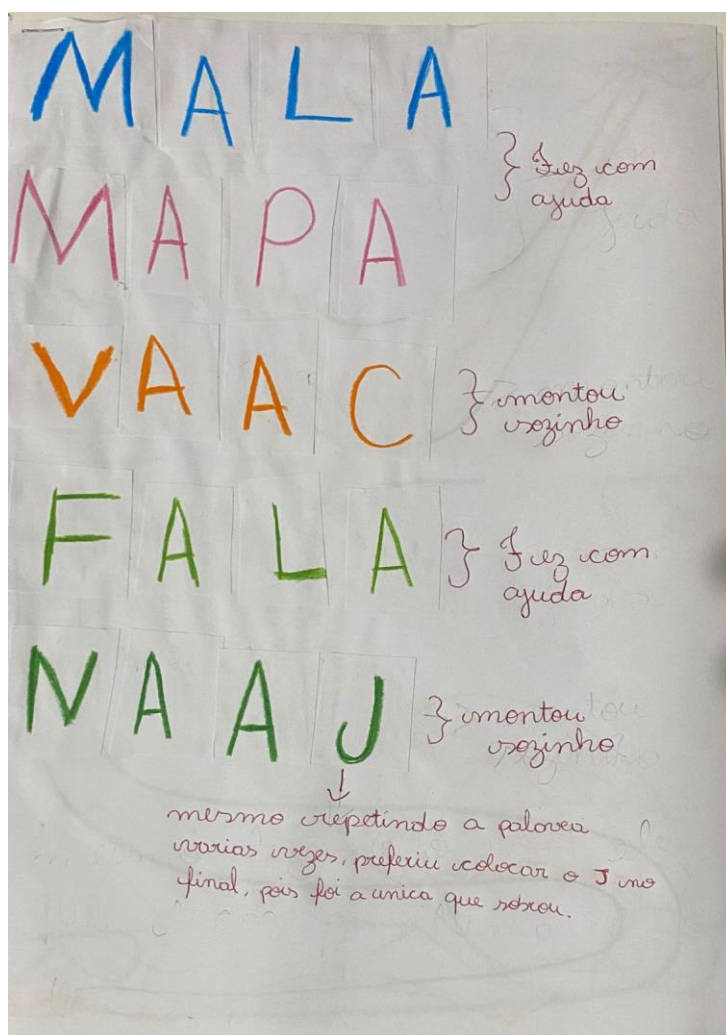 MALA
MAPA
} Fez com
ajuda
VAAC } montou
sozinho
FALA } Fez com
ajuda
NAAJ } montou
sozinho
mesmo repetindo a palavra
varias vezes, preferiu colocar o J no
final, pois foi a unica que sobrou.